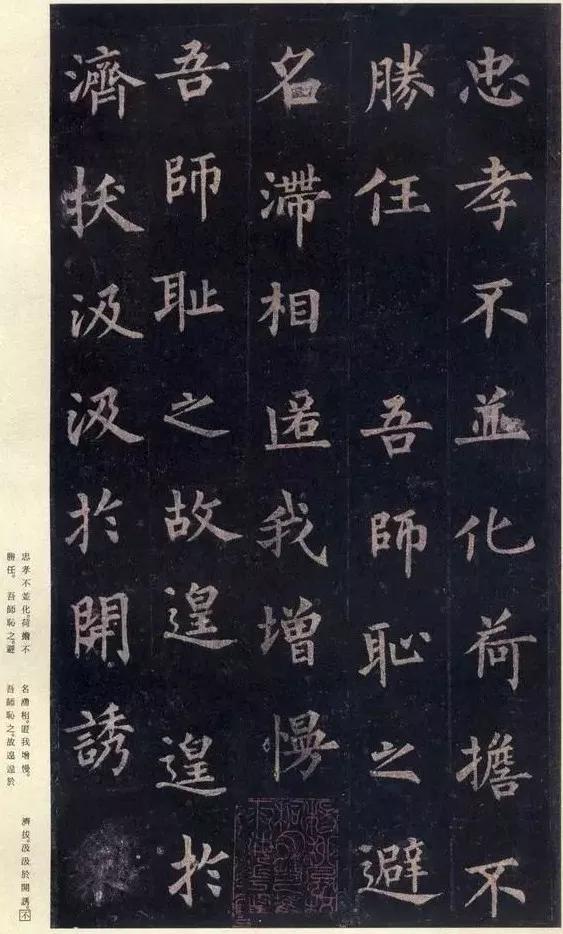 忠孝不並化荷擔不
勝任 吾師恥之避
名滯相匿我增慢
吾師耻之故遑遑於
濟拔汲汲於開誘
忠孝不並化。荷擔不
勝任。吾師恥之。避
名滯相。匿我增慢。
吾師恥之。故遑遑於
濟拔。汲汲於開誘。不